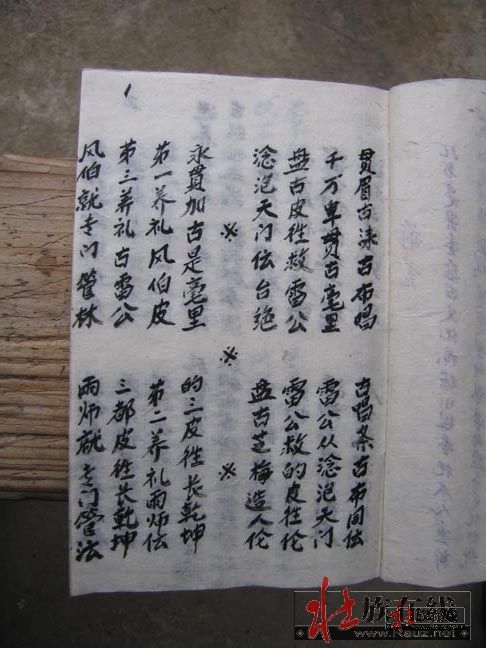 1
贯眉古渌古布唱 古唱条古布同伝
千万卑贯古毫里 雷公从淰泡天门
盘古皮徃救雷公 雷公救的皮徃伦
淰泡天门伝台绝 盘古芝梅造人伦
※ ※ ※
永贯加古是毫里 的三皮徃长乾坤
第一养礼风伯皮 第二养礼雨师伝
第三养礼古雷公 三都皮徃长乾坤
风伯就专门管林 雨师就专门管法
壮族在线
www.Rauz.net